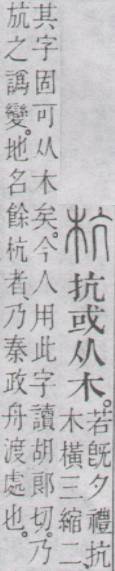 杭 抗或从木。
若旣夕禮抗
木橫三縮二
其字固可从木矣。今人用此字讀胡郎切。乃
斻之譌變。地名餘杭者、乃秦政舟渡處也。